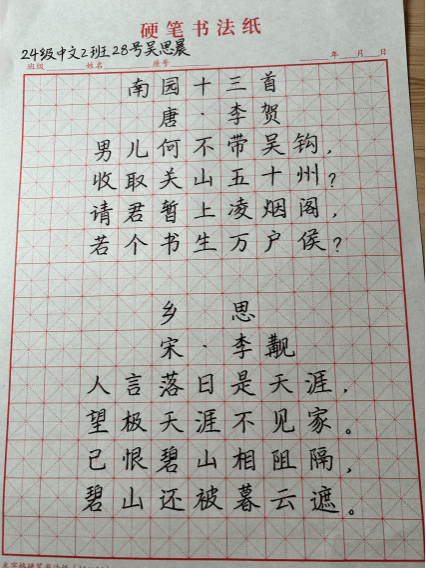 硬笔书法纸
24级中文2班28号吴思晨
班级 姓名 座号 年 月 日
南园十三首
唐·李贺
男儿何不带吴钩,
收取关山五十州?
请君暂上凌烟阁,
若个书生万户侯?
乡思
宋·李觏
人言落日是天涯,
望极天涯不见家。
已恨碧山相阻隔,
碧山还被暮云遮。